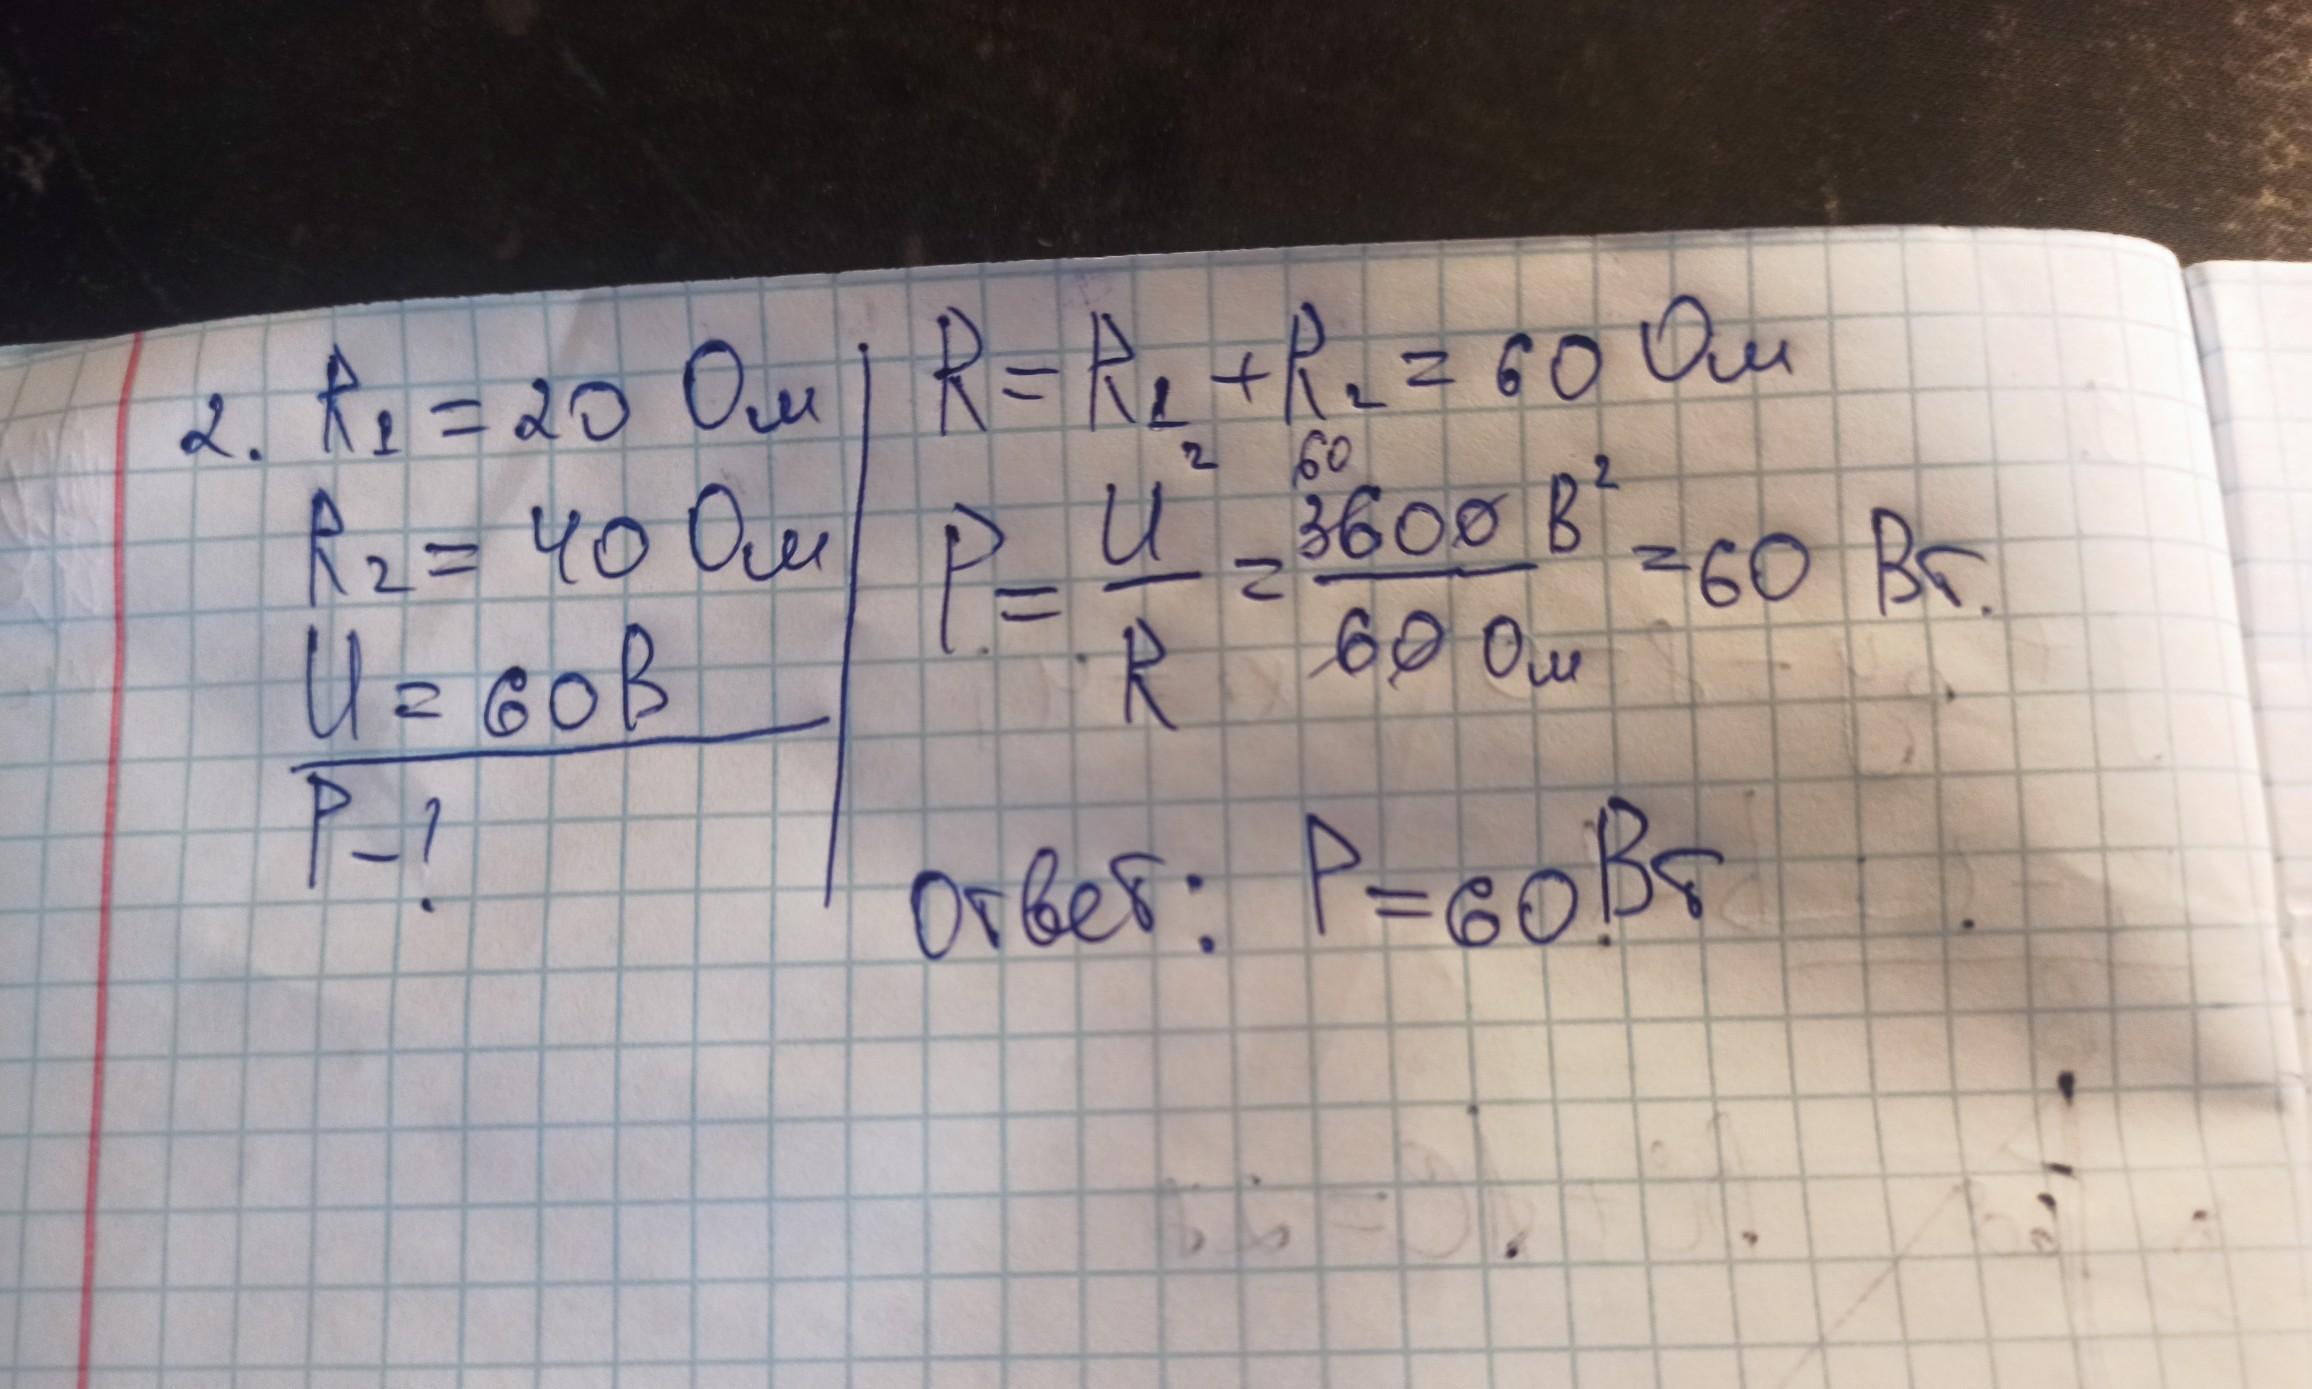 2. R₁ = 20 Ом
R₂ = 40 Ом
U = 60 В
P - ?
R = R₁ + R₂ = 60 Ом
P = U²/R = 3600 В²/60 Ом = 60 Вт.
60
Ответ: P = 60 Вт